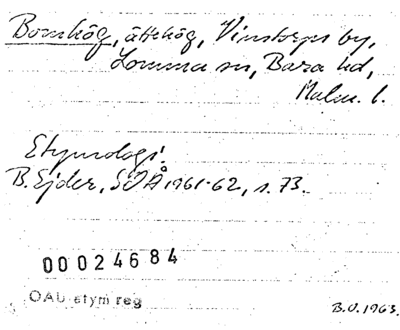 Bomhög, ättehög, Vinstorps by,
Lomma sn, Bara hd,
Malm. l.
Etymologi:
B. Ejder, SOÅ 1961-62, s. 73.
00024684
OAU etym reg
B.O. 1963.